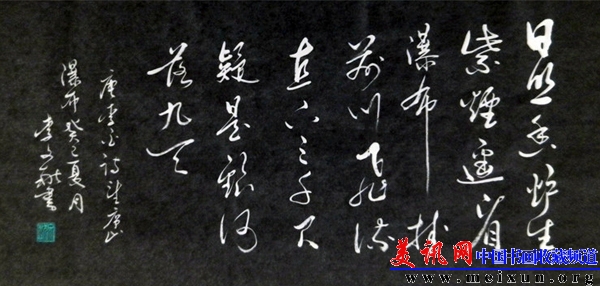 日照香炉生
紫煙遥看
瀑布挂
前川飞流
直下三千尺
疑是銀河
落九天
唐李白诗望庐山
瀑布癸巳夏月
李文書
美讯网 中国书画收藏频道
www.meixun.org